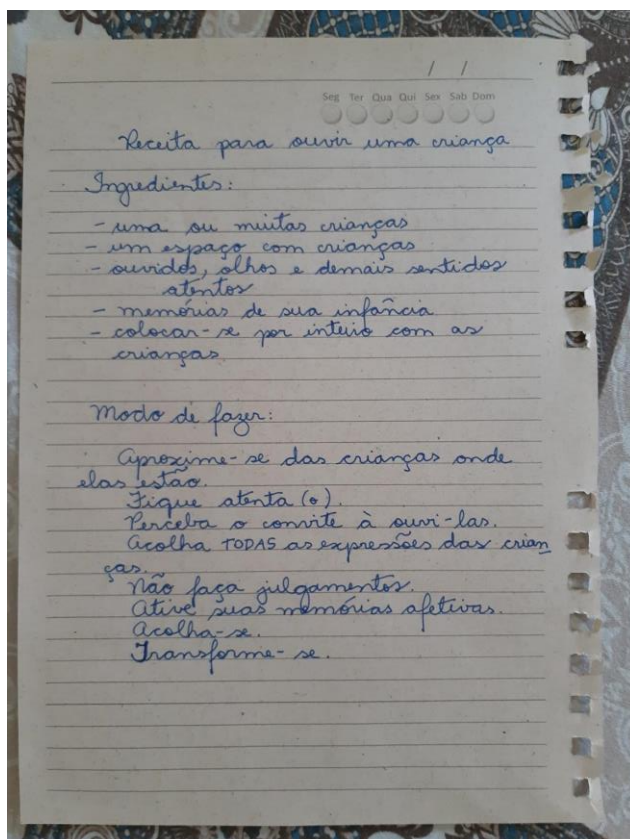 / /
Seg Ter Qua Qui Sex Sab Dom
Receita para ouvir uma criança
Ingredientes:
- uma ou muitas crianças
- um espaço com crianças
- ouvidos, olhos e demais sentidos
atentos
- memórias de sua infância
- colocar-se por inteiro com as
crianças
Modo de fazer:
Aproxime-se das crianças onde
elas estão.
Fique atenta (o).
Perceba o convite à ouvi-las.
Acolha TODAS as expressões das crian
ças.
Não faça julgamentos.
Ative suas memórias afetivas.
Acolha-se.
Transforme-se.